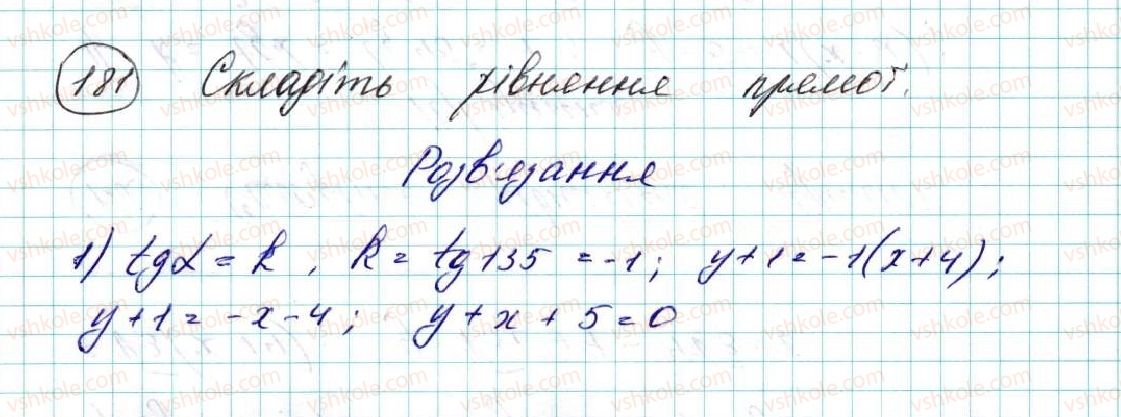 181 Складіть рівняння прямої.
Розв'язання
1) tgα = k, k = tg135 = -1; y+1 = -1(x+4);
y+1 = -x-4; y+x+5=0